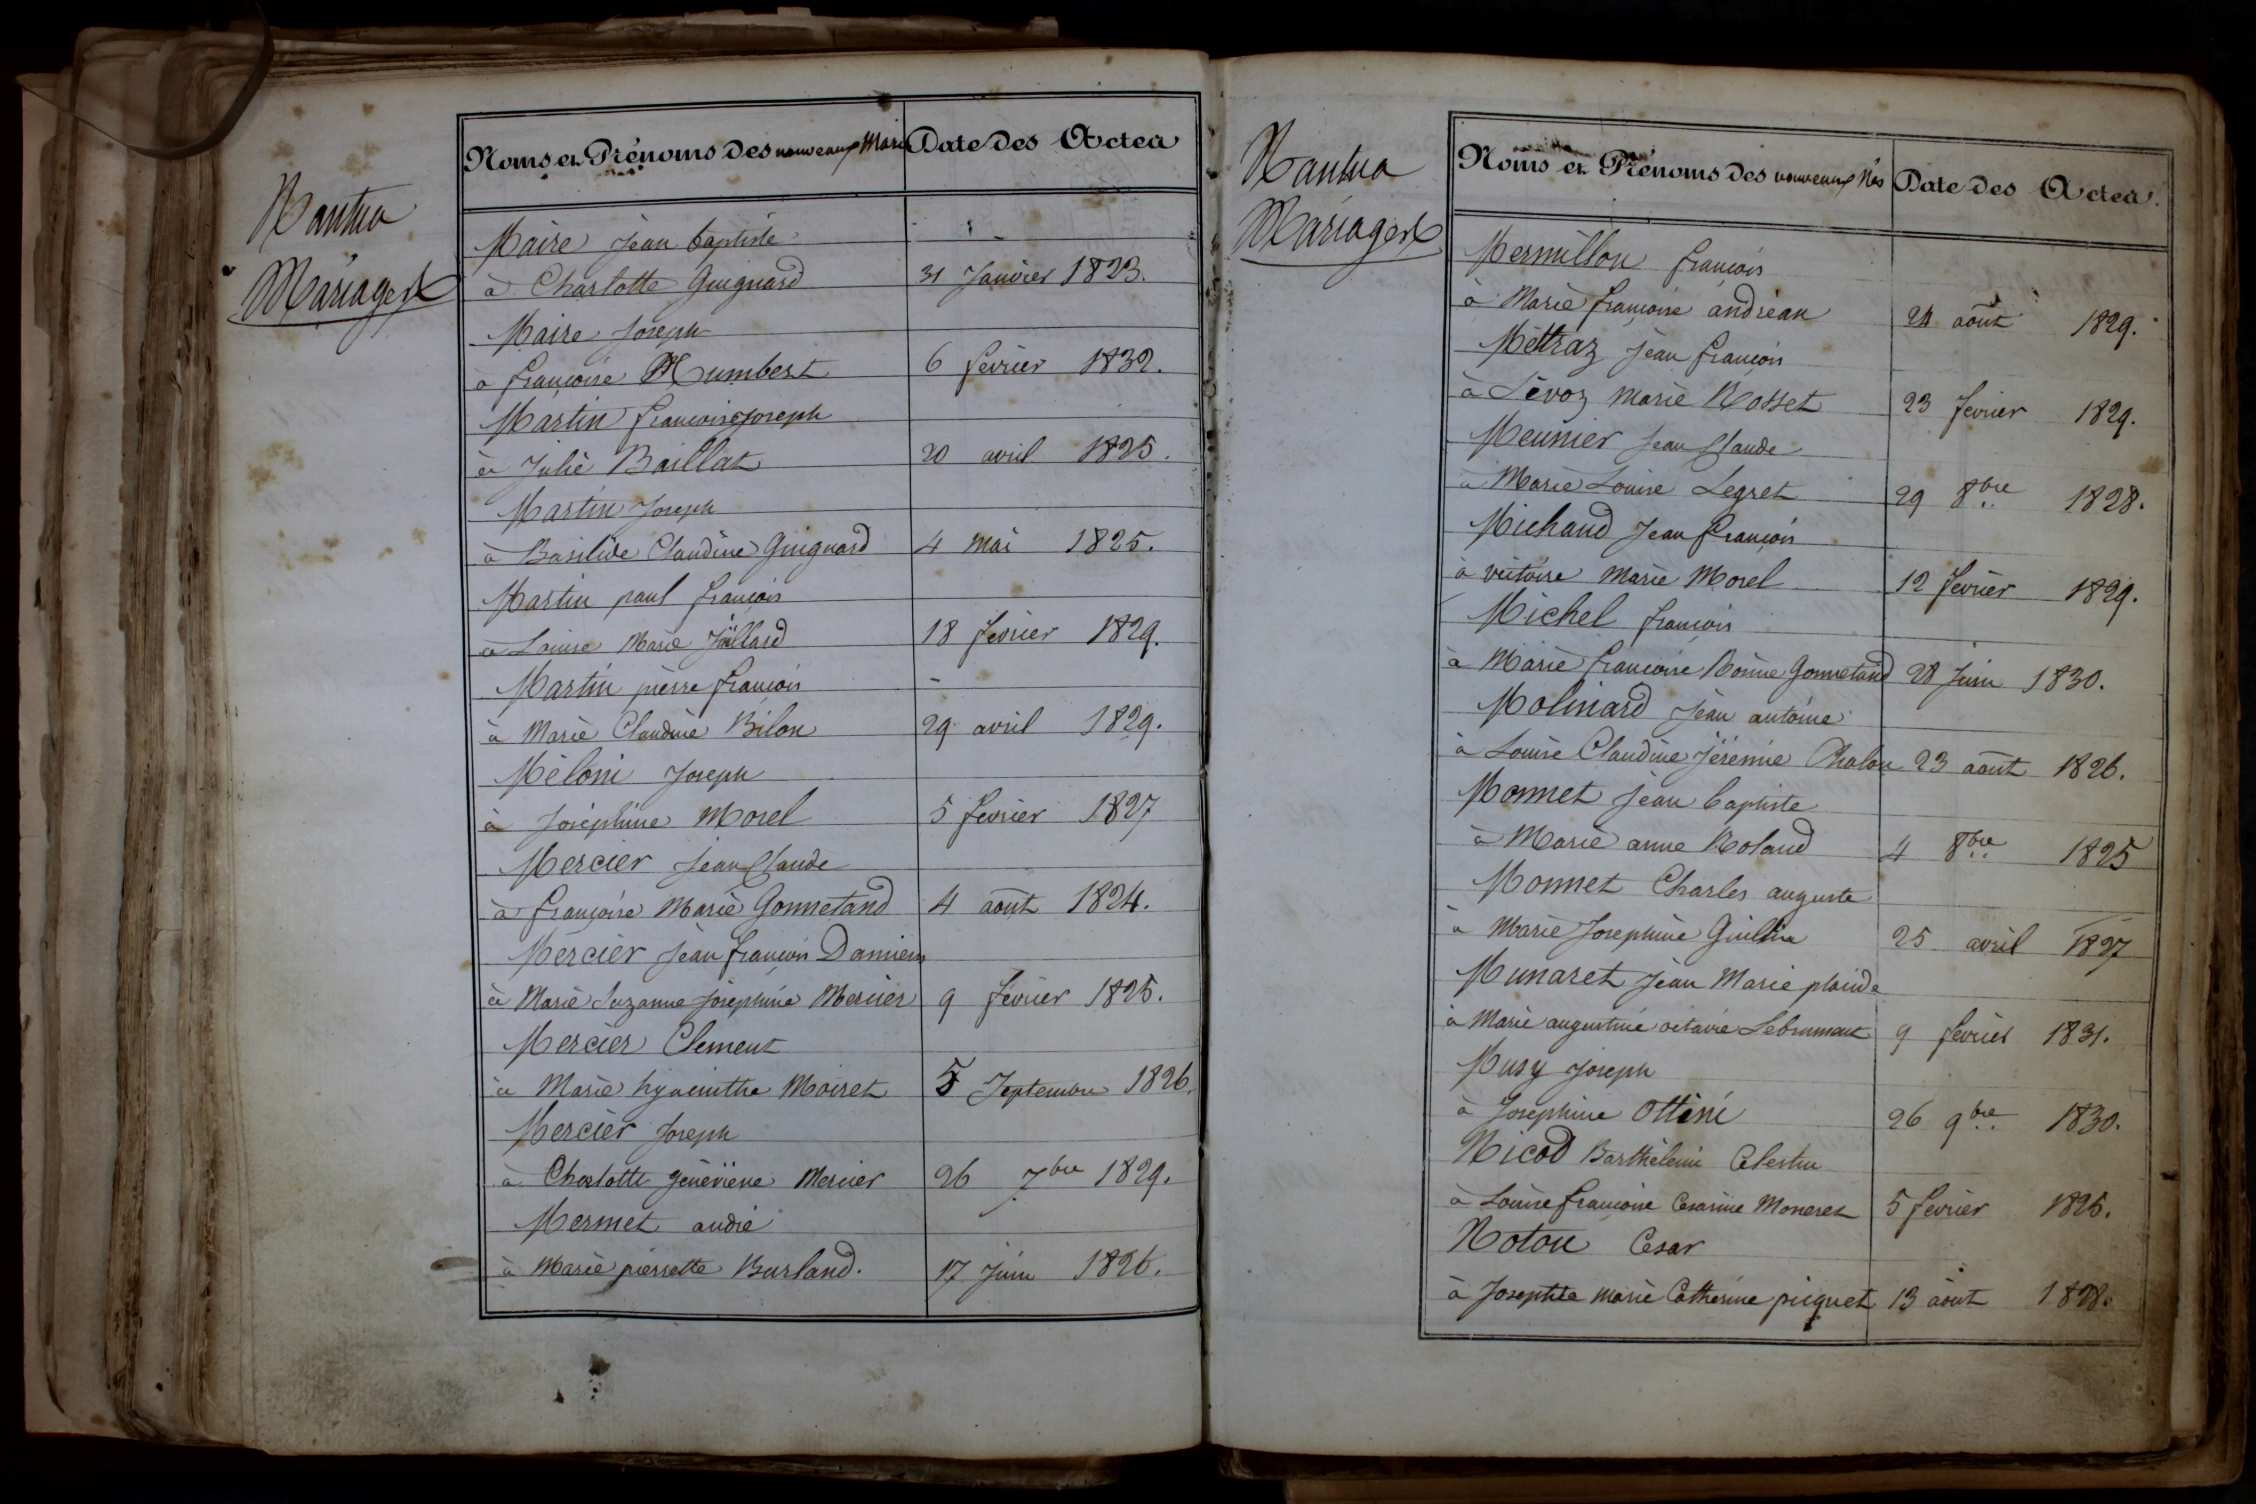 Nantua
Mariages
Noms et Prénoms des nouveaux Mari Date des Actes
Maire Jean baptiste
à Charlotte Guignard 31 Janvier 1823.
Maire Joseph
à françoise Humbert 6 février 1832.
Martin françois Joseph
à Julie Baillat 20 avril 1825.
Martin Joseph
à Basilide Claudine Guignard 4 mai 1825.
Martin paul françois
à Louise Marie Jüllard 18 février 1829.
Martin pierre françois
à Marie Claudine Bilon 29 avril 1829.
Méloni Joseph
à Joséphine Morel 5 février 1827
Mercier Jean Claude
à françoise Marie Gonnetand 4 août 1824.
Mercier Jean françois Damiens
à Marie Suzanne Joséphine Mercier 9 février 1825.
Mercier Clement
à Marie hyacinthe Moiret 5 Septembre 1826.
Mercier Joseph
à Charlotte géneviève Mercier 26 7bre 1829.
Mermet andré
à Marie pierrette Burland. 17 Juin 1826.
Nantua
Mariages
Noms et Prénoms des nouveaux Nés Date des Actes.
Mermillon françois
à Marie françoise andréan 24 août 1829.
Mettraz Jean françois
à Sévoz Marie Rosset 23 février 1829.
Meunier Jean Claude
à Marie Louise Legret 29 8bre 1828.
Michaud Jean françois
à victoire Marie Morel 12 février 1829.
Michel françois
à Marie françoise Bonne Gonnetand 28 Juin 1830.
Molinard Jean antoine
à Louise Claudine Jérémie Chalon 23 août 1826.
Monnet Jean baptiste
à Marie anne Roland 4 8bre 1825
Monnet Charles auguste
à Marie Josephine 25 avril 1827
Munaret Jean Marie placide
à Marie augustine octavie Lebrument 9 février 1831.
Musy Joseph
à Josephine Ottiné 26 9bre 1830.
Nicod Barthélemi Célestin
à Louise françoise Césarine Moneret 5 février 1825.
Noton César
à Josephte Marie Catherine picquet 13 août 1828.